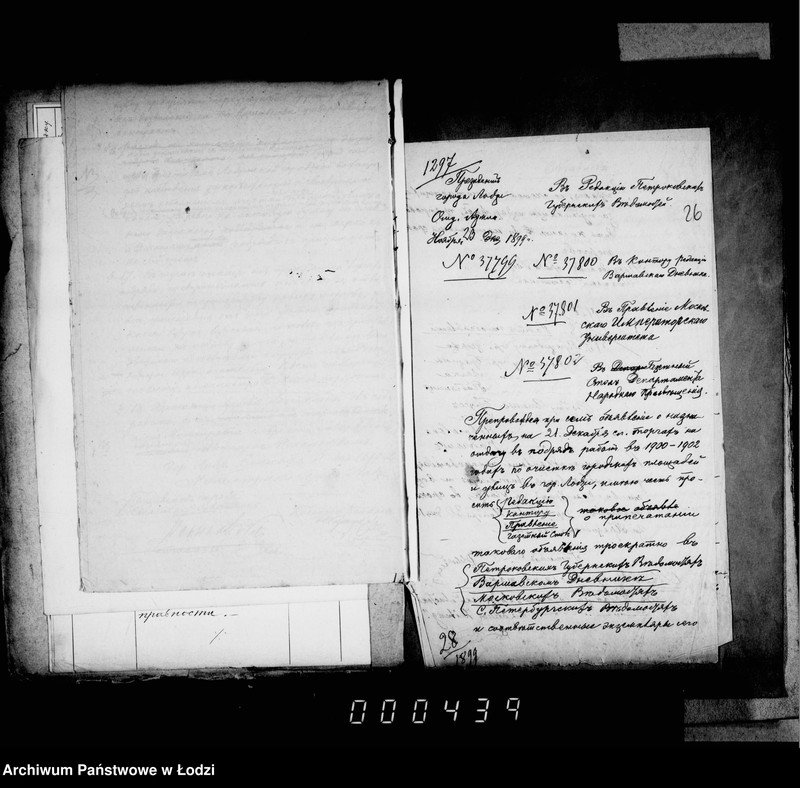 1297
Президентъ
города Лодзи
Ноября 23 дня 1899 г.
Въ Редакцію Петроковскихъ
Губернскихъ Вѣдомостей
26
№ 37799
№ 37800
Въ Контору редакціи
Варшавскаго Дневника.
№ 37801
Въ Правленіе Москов-
скаго Императорскаго
Университета
№ 37802
Въ Газетный
Столъ Департамента
Народнаго Просвѣщенія.
Препровождая при семъ объявленіе о назна-
ченныхъ на 21 Декабря с.г. торгахъ на
отдачу въ подрядъ работъ въ 1900-1902
годахъ по очисткѣ городскихъ площадей
и улицъ въ гор. Лодзи, имѣю честь про-
сить
Редакцію
Контору
Правленіе
Газетный Столъ
таковое объявле
о припечатаніи
таковаго объявленія троекратно въ
Петроковскихъ Губернскихъ Вѣдомостяхъ
Варшавскомъ Дневникѣ
Московскихъ Вѣдомостяхъ
С. Петербургскихъ Вѣдомостяхъ
и соотвѣтственные экземпляры сего
28
1899
правности. —
000439
Archiwum Państwowe w Łodzi